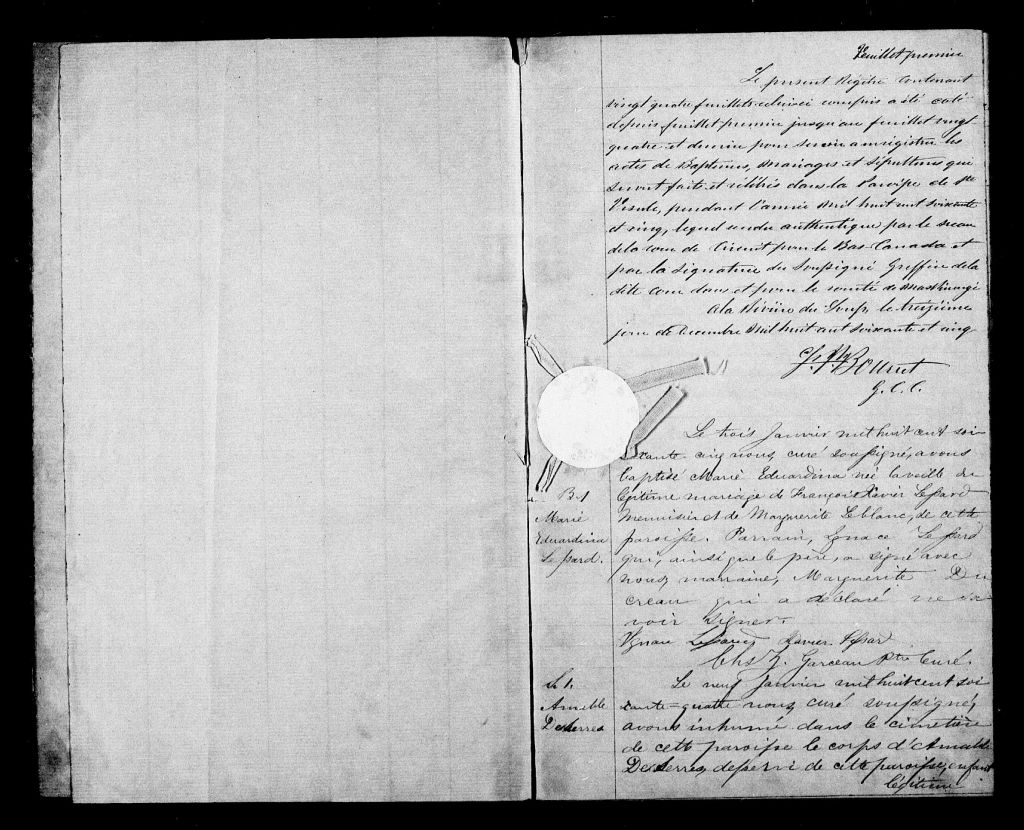 Feuillet premier
Le présent Régître contenant
vingt quatre feuillets celui ci compris a été coté
depuis feuillet premier jusqu'au feuillet vingt
quatre et dernier pour servir a enregistrer les
actes de Baptêmes, Mariages et Sépultures qui
seront faits et célébrés dans la Paroisse de Ste
Ursule, pendant l'année Mil huit cent soixante
et cinq, lequel rendu authentique par le sceau
de la cour de Circuit pour le Bas Canada et
par la signature du Soussigné Greffier de la
dite cour dans et pour le comté de Maskinongé
A la Rivière du Loup, le treizième
jour de Décembre Mil huit cent soixante et cinq
Bourret
G.C.C.
Le trois Janvier mil huit cent soi-
xante-cinq nous, curé soussigné, avons
baptisé Marie Eduardina née la veille du
B. 1
légitime mariage de François Xavier Lessard
Marie
Menuisier et de Marguerite Leblanc, de cette
Eduardina
paroisse. Parrain, Ignace Lessard
Lessard.
qui, ainsi que le père, a signé avec
nous, marraine, Marguerite Du
creau qui a déclaré ne sa
voir signer.
Lessard Xavier Lessar
Chs Z. Garceau Ptre Curé.
S. 1.
Le neuf Janvier mil huit cent soi
Amable
xante-quatre nous, curé soussigné,
Deserres
avons inhumé dans le cimetière
de cette paroisse le corps d'Amable
Deserres, de cette paroisse, enfant
légitime